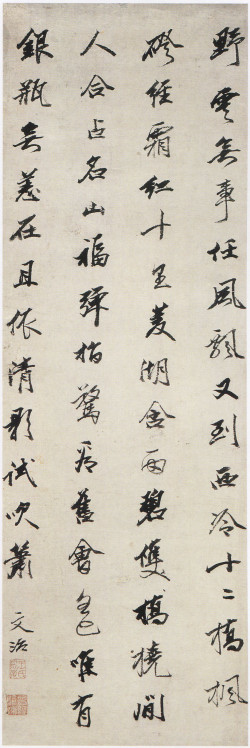 野雲無事任風飄又到西泠十二橋楓
磴經霜紅十里菱湖含雨碧雙橋境閒
人合占名山福彈指驚看舊會無唯有
銀瓶無恙在且依清影試吹簫
文治